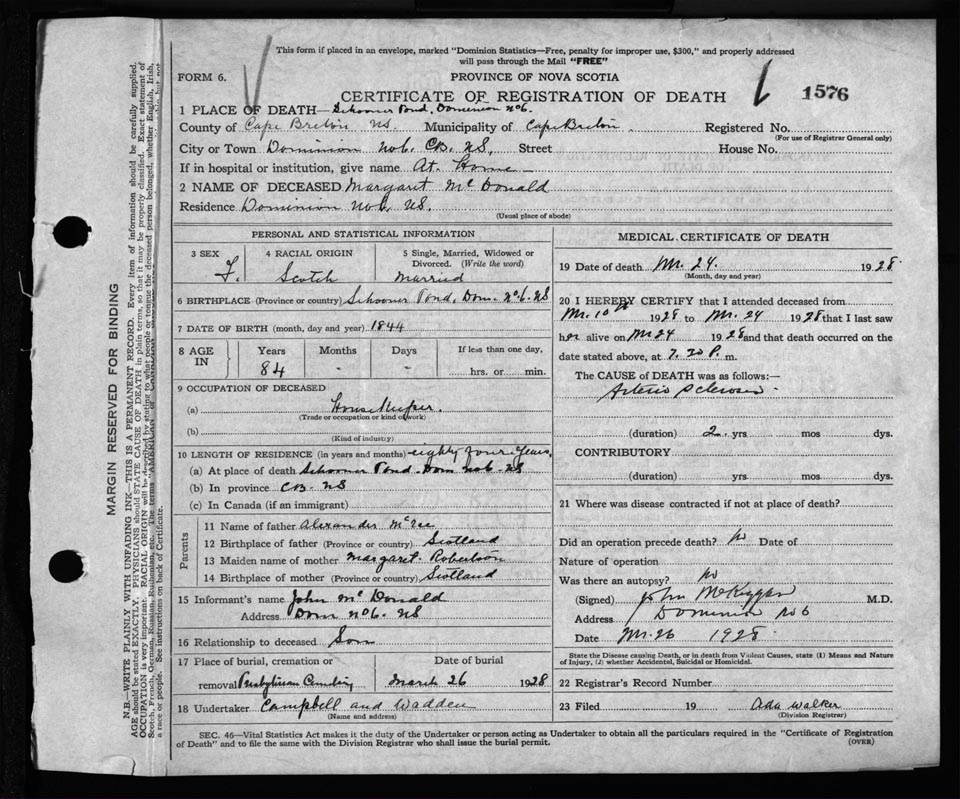 This form if placed in an envelope, marked "Dominion Statistics—Free, penalty for improper use, $300," and properly addressed
will pass through the Mail "FREE"
FORM 6.
PROVINCE OF NOVA SCOTIA
CERTIFICATE OF REGISTRATION OF DEATH
1576
1 PLACE OF DEATH—Schooner Pond, Dominion No 6.
County of Cape Breton NS. Municipality of Cape Breton. Registered No.
(For use of Registrar General only)
City or Town Dominion No 6. CB. NS, Street House No.
If in hospital or institution, give name At Home
2 NAME OF DECEASED Margaret McDonald
Residence Dominion No 6, NS.
(Usual place of abode)
PERSONAL AND STATISTICAL INFORMATION
3 SEX 4 RACIAL ORIGIN 5 Single, Married, Widowed or
Divorced. (Write the word)
F. Scotch Married
6 BIRTHPLACE (Province or country) Schooner Pond, Dom. No 6. NS
7 DATE OF BIRTH (month, day and year) 1844
8 AGE IN Years Months Days If less than one day,
84 - - hrs. or min.
9 OCCUPATION OF DECEASED
(a) House Keeper.
(Trade or occupation or kind of work)
(b)
(Kind of industry)
10 LENGTH OF RESIDENCE (in years and months) eighty four years,
(a) At place of death Schooner Pond. Dom No 6. NS
(b) In province CB. NS
(c) In Canada (if an immigrant)
Parents
11 Name of father Alexander
12 Birthplace of father (Province or country) Scotland
13 Maiden name of mother Margaret Robertson
14 Birthplace of mother (Province or country) Scotland
15 Informant's name John McDonald
Address Dom No 6. NS
16 Relationship to deceased Son
17 Place of burial, cremation or Date of burial
removal Presbyterian March 26 1928
18 Undertaker Campbell and Wadden
(Name and address)
MEDICAL CERTIFICATE OF DEATH
19 Date of death Mr. 24. 1928
(Month, day and year)
20 I HEREBY CERTIFY that I attended deceased from
Mr. 10th 1928 to Mr. 24 1928 that I last saw
her alive on Mr 24 1928 and that death occurred on the
date stated above, at 7.20 P. m.
The CAUSE of DEATH was as follows:—
Arterio Sclerosis
(duration) 2 yrs mos dys.
CONTRIBUTORY
(duration) yrs mos dys.
21 Where was disease contracted if not at place of death?
Did an operation precede death? No Date of
Nature of operation
Was there an autopsy? No
(Signed) John M.D.
Address Dominion No 6
Date Mr. 26 1928
State the Disease causing Death, or in death from Violent Causes, state (1) Means and Nature
of Injury, (2) whether Accidental, Suicidal or Homicidal.
22 Registrar's Record Number
23 Filed 19 Ada Walker
(Division Registrar)
SEC. 46—Vital Statistics Act makes it the duty of the Undertaker or person acting as Undertaker to obtain all the particulars required in the "Certificate of Registration
of Death" and to file the same with the Division Registrar who shall issue the burial permit. (OVER)
MARGIN RESERVED FOR BINDING
N.B.—WRITE PLAINLY WITH UNFADING INK—THIS IS A PERMANENT RECORD. Every item of information should be carefully supplied.
AGE should be stated EXACTLY. PHYSICIANS should STATE CAUSE OF DEATH in plain terms, so that it may be properly classified. Exact statement of
OCCUPATION is very important. RACIAL ORIGIN will be described by stating to what people or tongue the deceased person belonged, whether English, Irish,
Scotch, French, German, Russian, Ruthenian, etc. The terms "AMERICAN" or
a race or people. See instructions on back of Certificate.